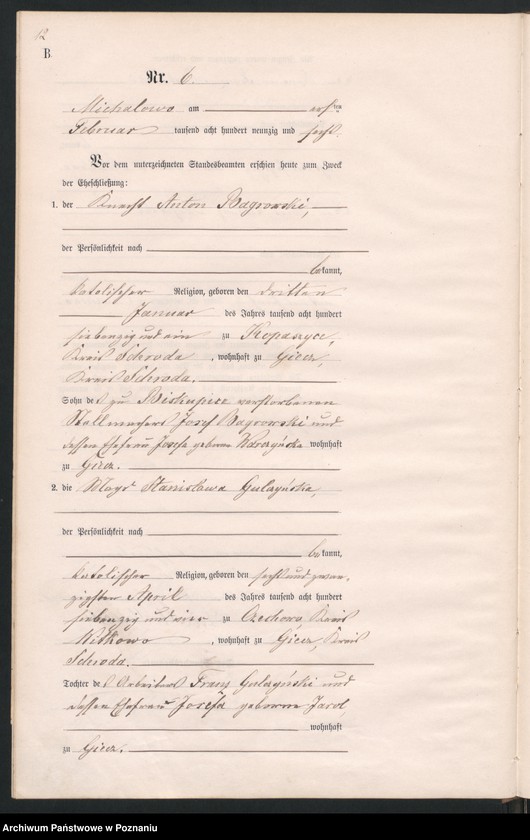 12
B.
Nr. 6.
Michalowo am ersten
Februar tausend acht hundert neunzig und sechs.
Vor dem unterzeichneten Standesbeamten erschien heute zum Zweck
der Eheschließung:
1. der Knecht Anton Bagrowski,
der Persönlichkeit nach
bekannt,
katolischer Religion, geboren den dritten
Januar des Jahres tausend acht hundert
siebenzig und ein zu Kopaszyce,
Kreis Schroda, wohnhaft zu Giecz,
Kreis Schroda.
Sohn des zu Biskupice verstorbenen
Stellmachers Josef Bagrowski und
dessen Ehefrau Josefa geborne wohnhaft
zu Giecz.
2. die Magd Stanislawa Gulczyńska,
der Persönlichkeit nach
bekannt,
katolischer Religion, geboren den sechs und zwan-
zigsten April des Jahres tausend acht hundert
siebenzig und vier zu Czechowo, Kreis
Witkowo, wohnhaft zu Giecz, Kreis
Schroda.
Tochter des Arbeiters Franz Gulczyński und
dessen Ehefrau Josefa geborne Jarol
wohnhaft
zu Giecz.
Archiwum Państwowe w Poznaniu